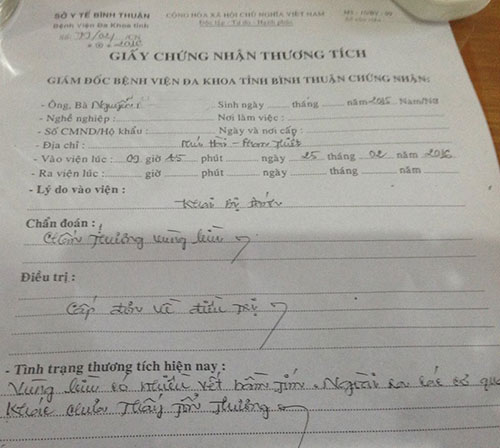 SỞ Y TẾ BÌNH THUẬN CỘNG HÒA XÃ HỘI CHỦ NGHĨA VIỆT NAM
Bệnh Viện Đa Khoa tỉnh Độc lập - Tự do - Hạnh phúc
GIẤY CHỨNG NHẬN THƯƠNG TÍCH
GIÁM ĐỐC BỆNH VIỆN ĐA KHOA TỈNH BÌNH THUẬN CHỨNG NHẬN:
- Ông, Bà Nguyễn Sinh ngày tháng năm 2015 Nam/Nữ
- Nghề nghiệp: Nơi làm việc:
- Số CMND/Hộ khẩu: Ngày và nơi cấp
- Địa chỉ: - Phan Thiết
- Vào viện lúc: 09 giờ 45 phút ngày 25 tháng 02 năm 2016
- Ra viện lúc: giờ phút ngày tháng năm
- Lý do vào viện:
Khai bị đánh
Chẩn đoán:
Chấn thương vùng lưng
Điều trị:
Cấp đơn về điều trị
- Tình trạng thương tích hiện nay:
Vùng lưng có nhiều vết bầm tím. Ngoài ra các cơ qua
Khác chưa thấy tổn thương